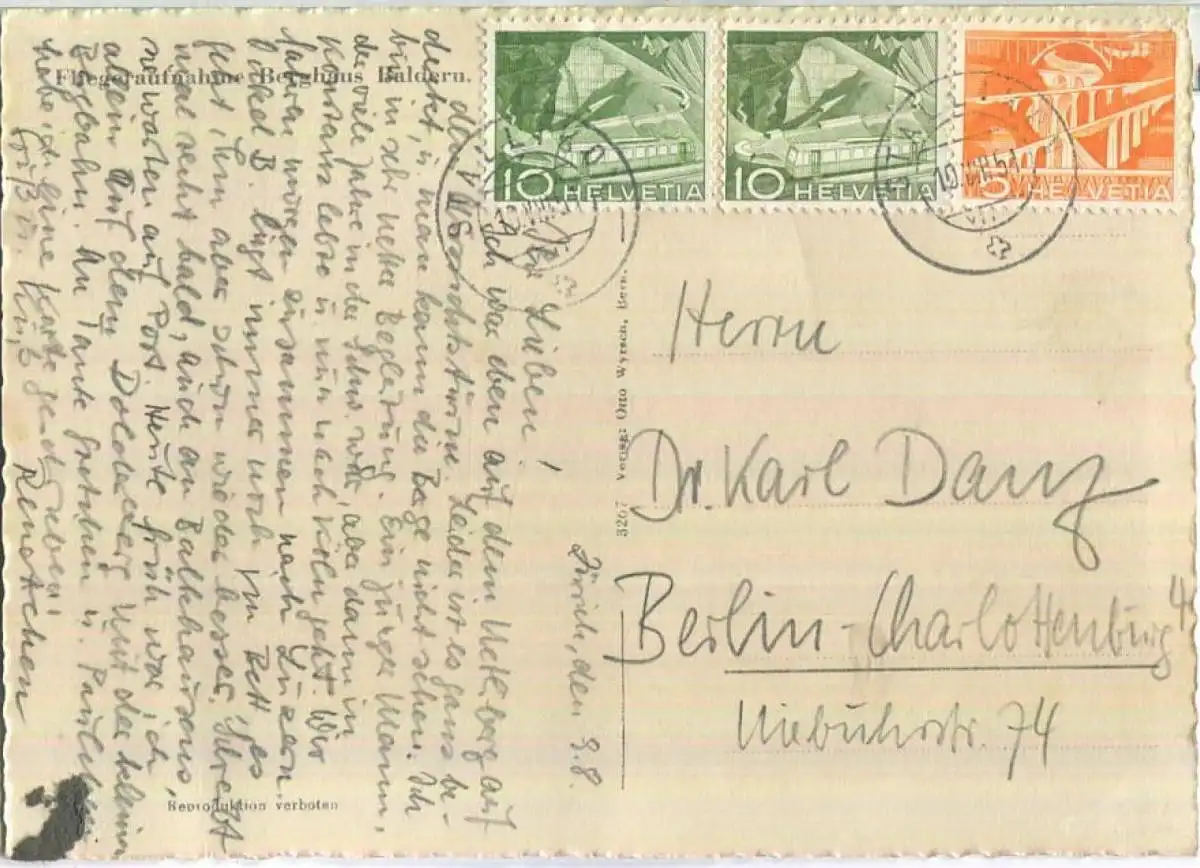 Fliegeraufnahme Berghaus Baldern.
10 HELVETIA
10 HELVETIA
5 HELVETIA
Zürich, den 9.8.
Ihr Lieben!
Ich war eben auf dem Uetliberg auf
dem Aussichtsturm. Leider ist es ganz be-
deckt, u. man kann die Berge nicht sehen. Ich
bin in sehr netter Begleitung. Ein junger Mann,
der viele Jahre in der Schweiz war, aber dann in
Konstanz lebte u. nun nach Köln geht. Wir
fahren morgen zusammen nach Luzern.
B. liegt immer noch im Bett, es
geht ihm aber schon wieder besser. Schreibt
mal recht bald, auch an Balkhausens,
sie warten auf Post. Heute früh war ich
allein auf dem Dolderberg mit der kleinen
Bergbahn. An Tante Gretchen u. Paulchen
habe ich eine Karte geschrieben!
Gruß u. Kuß
Renatchen
Reproduktion verboten
3207 Verlag: Otto Wyrsch, Bern.
Herrn
Dr. Karl Danz
Berlin-Charlottenburg 4
Niebuhrstr. 74